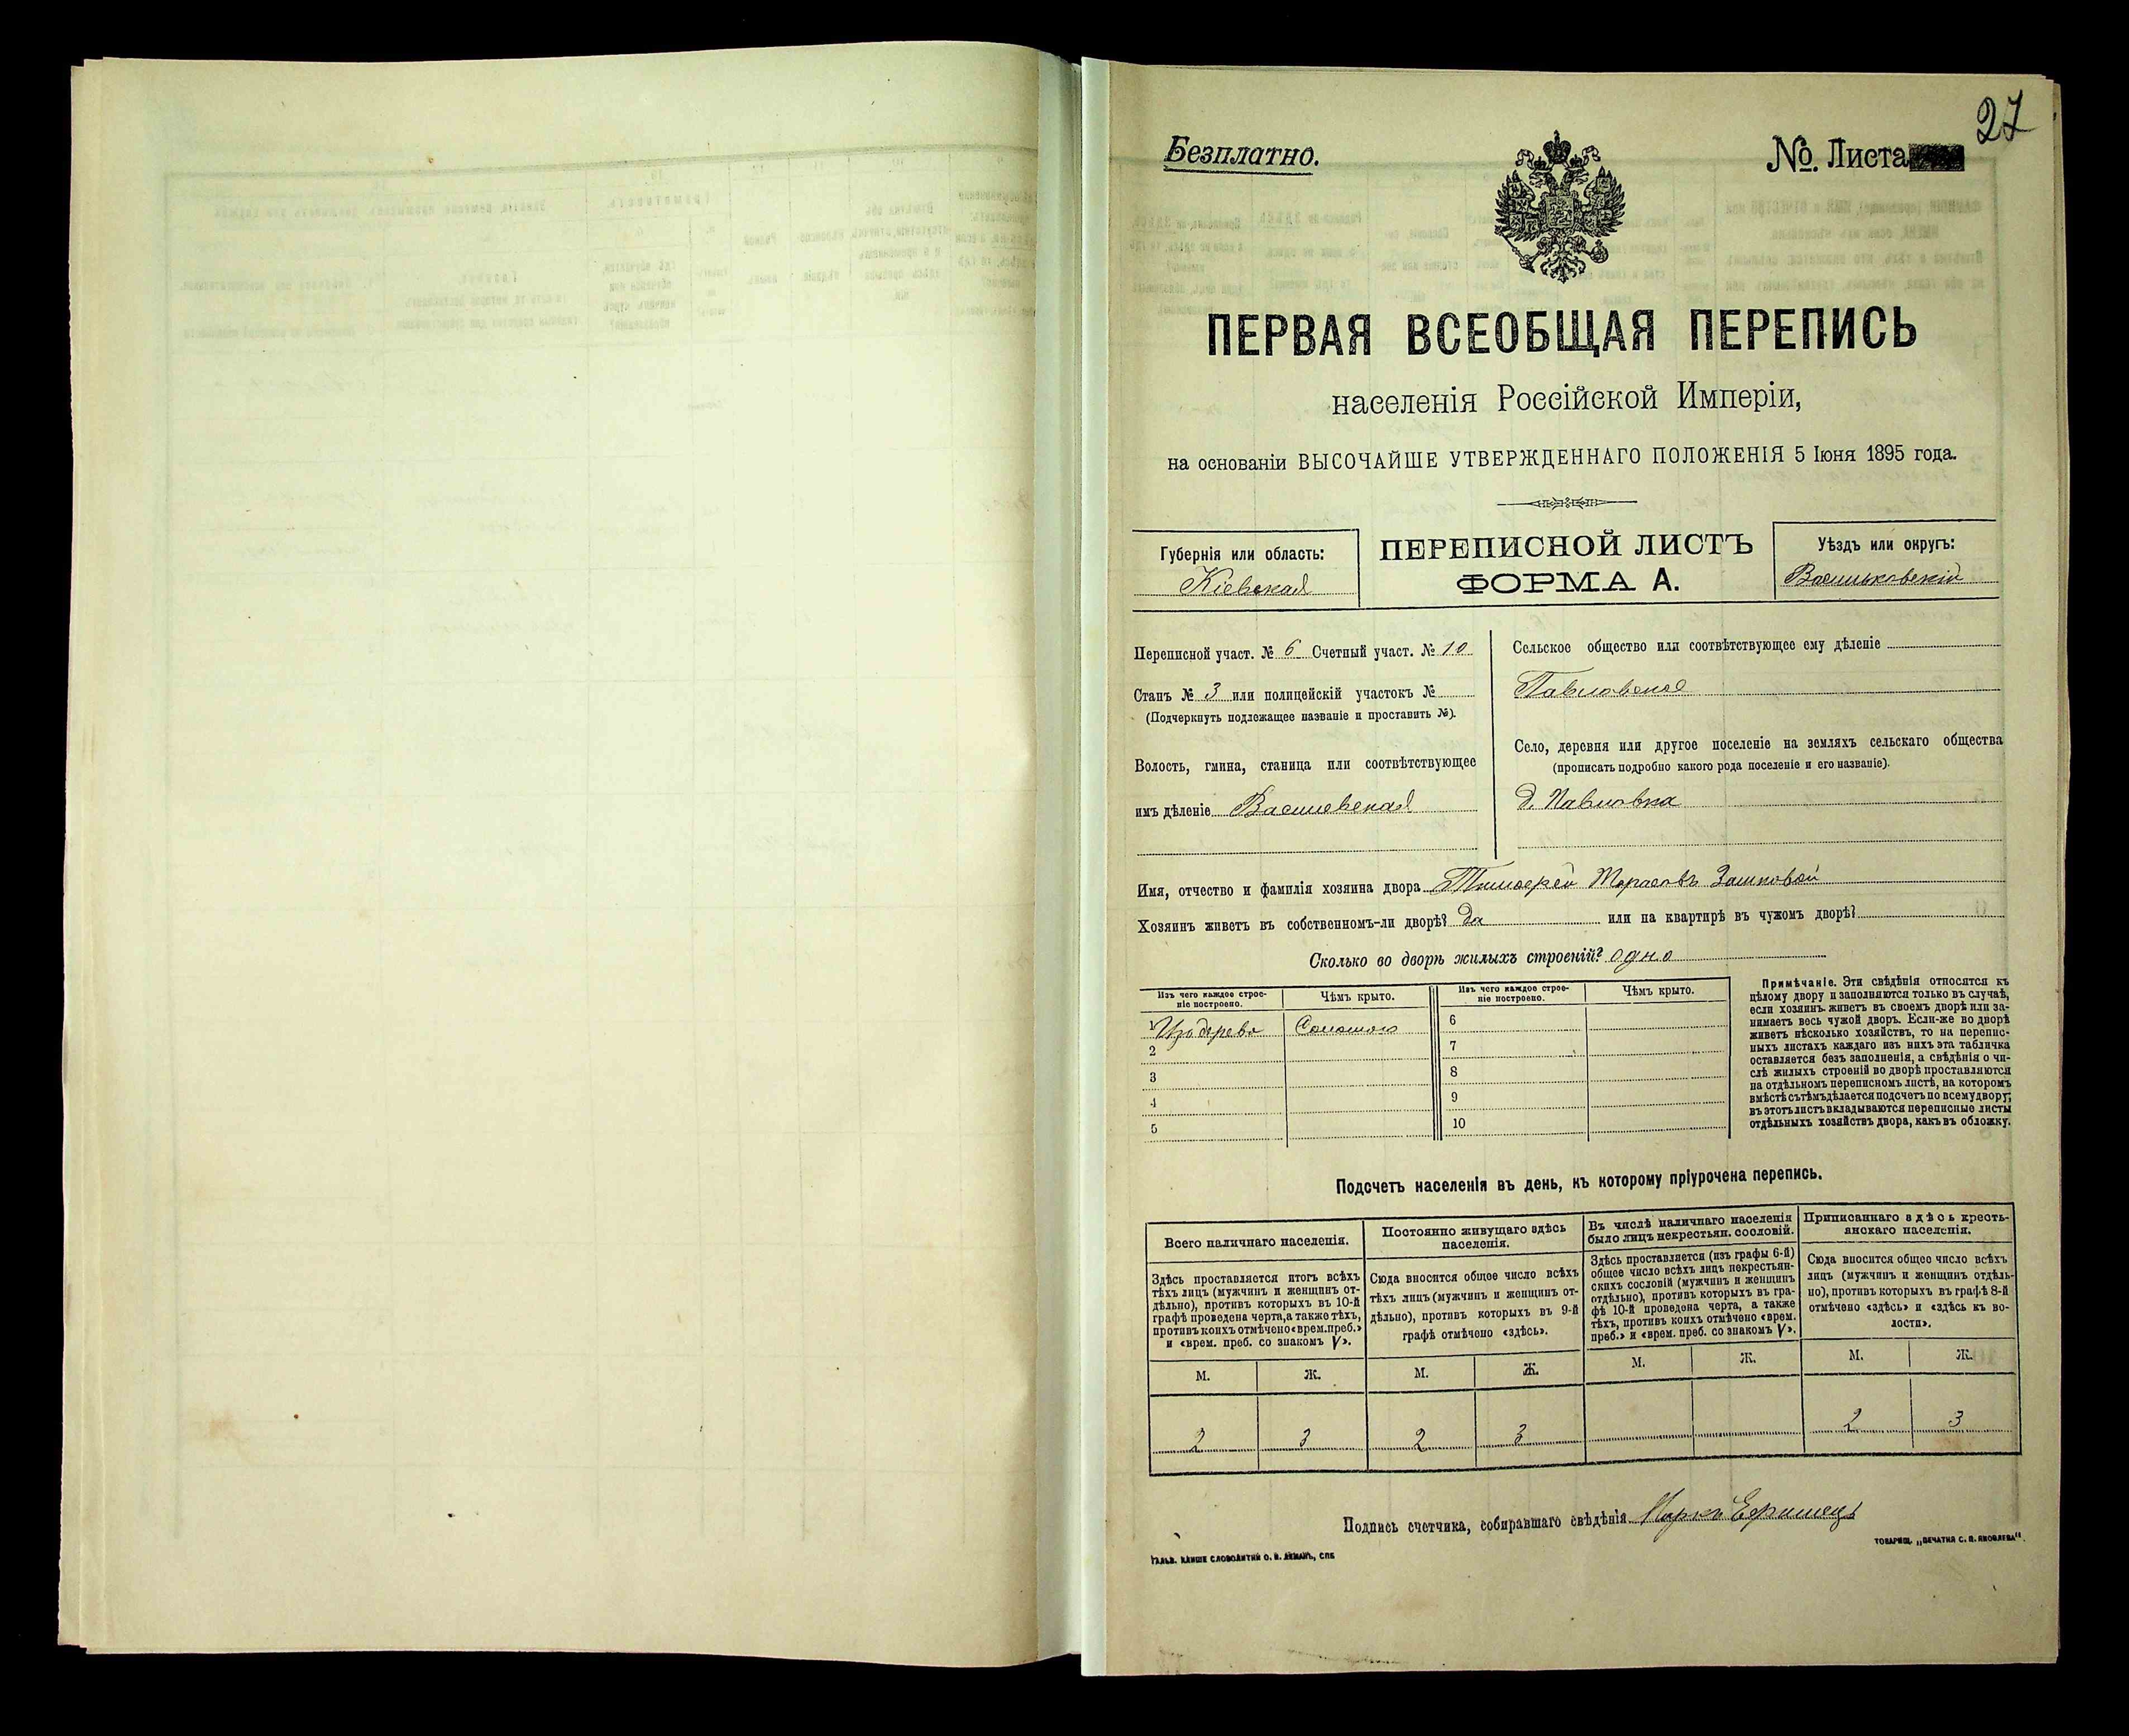 27
Безплатно.
№ Листа
ПЕРВАЯ ВСЕОБЩАЯ ПЕРЕПИСЬ
населенія Россійской Имперіи,
на основаніи ВЫСОЧАЙШЕ УТВЕРЖДЕННАГО ПОЛОЖЕНІЯ 5 Іюня 1895 года.
Губернія или область:
Кіевская
ПЕРЕПИСНОЙ ЛИСТЪ
ФОРМА А.
Уѣздъ или округъ:
Васильковскій
Переписной участ. № 6 Счетный участ. № 10
Станъ № 3 или полицейскій участокъ №
(Подчеркнуть подлежащее названіе и проставить №).
Волость, гмина, станица или соотвѣтствующее
имъ дѣленіе Василевская
Сельское общество или соотвѣтствующее ему дѣленіе
Павловское
Село, деревня или другое поселеніе на земляхъ сельскаго общества
(прописать подробно какого рода поселеніе и его названіе).
д. Павловка
Имя, отчество и фамилія хозяина двора Тимофей Тарасовъ
Хозяинъ живетъ въ собственномъ-ли дворѣ? да или на квартирѣ въ чужомъ дворѣ?
Сколько во дворѣ жилыхъ строеній? одно
Изъ чего каждое строе-
ніе построено.
Чѣмъ крыто.
Изъ чего каждое строе-
ніе построено.
Чѣмъ крыто.
1 Изъ дерева Соломою 6
2 7
3 8
4 9
5 10
Примѣчаніе. Эти свѣдѣнія относятся къ
цѣлому двору и заполняются только въ случаѣ,
если хозяинъ живетъ въ своемъ дворѣ или за-
нимаетъ весь чужой дворъ. Если-же во дворѣ
живетъ нѣсколько хозяйствъ, то на перепис-
ныхъ листахъ каждаго изъ нихъ эта табличка
оставляется безъ заполненія, а свѣдѣнія о чи-
слѣ жилыхъ строеній во дворѣ проставляются
на отдѣльномъ переписномъ листѣ, на которомъ
вмѣстѣ съ тѣмъ дѣлается подсчетъ по всему двору;
въ этотъ листъ вкладываются переписные листы
отдѣльныхъ хозяйствъ двора, какъ въ обложку.
Подсчетъ населенія въ день, къ которому пріурочена перепись.
Всего наличнаго населенія.
Здѣсь проставляется итогъ всѣхъ
тѣхъ лицъ (мужчинъ и женщинъ от-
дѣльно), противъ которыхъ въ 10-й
графѣ проведена черта, а также тѣхъ,
противъ коихъ отмѣчено «врем. преб.»
и «врем. преб. со знакомъ V».
Постоянно живущаго здѣсь
населенія.
Сюда вносится общее число всѣхъ
тѣхъ лицъ (мужчинъ и женщинъ от-
дѣльно), противъ которыхъ въ 9-й
графѣ отмѣчено «здѣсь».
Въ числѣ наличнаго населенія
было лицъ некрестьян. сословій.
Здѣсь проставляется (изъ графы 6-й)
общее число всѣхъ лицъ некрестьян-
скихъ сословій (мужчинъ и женщинъ
отдѣльно), противъ которыхъ въ гра-
фѣ 10-й проведена черта, а также
тѣхъ, противъ коихъ отмѣчено «врем.
преб.» и «врем. преб. со знакомъ V».
Приписаннаго здѣсь кресть-
янскаго населенія.
Сюда вносится общее число всѣхъ
лицъ (мужчинъ и женщинъ отдѣль-
но), противъ которыхъ въ графѣ 8-й
отмѣчено «здѣсь» и «здѣсь къ во-
лости».
М. Ж. М. Ж. М. Ж. М. Ж.
2 3 2 3 2 3
Подпись счетчика, собиравшаго свѣдѣнія Марко
ТОВАРИЩ. „ПЕЧАТНЯ С. П. ЯКОВЛЕВА".
ГАЛЬВ. КЛИШЕ СЛОВОЛИТНИ О. И. ЛЕМАНЪ, СПБ